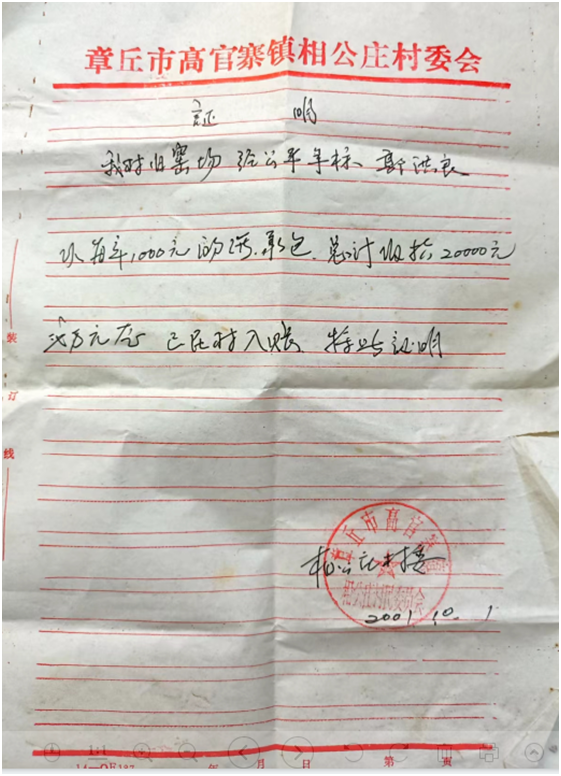 章丘市高官寨镇相公庄村委会
证 明
我村旧窑场 经公平争标、郭洪良
以每年1,000元的 承包、总计收拾20000元
贰万元 已在村入账 特此证明
装
订
线
章丘市高官寨
相公庄村民委员会
相公庄村委
2001.10.1
1:1
年 月 日 第 页